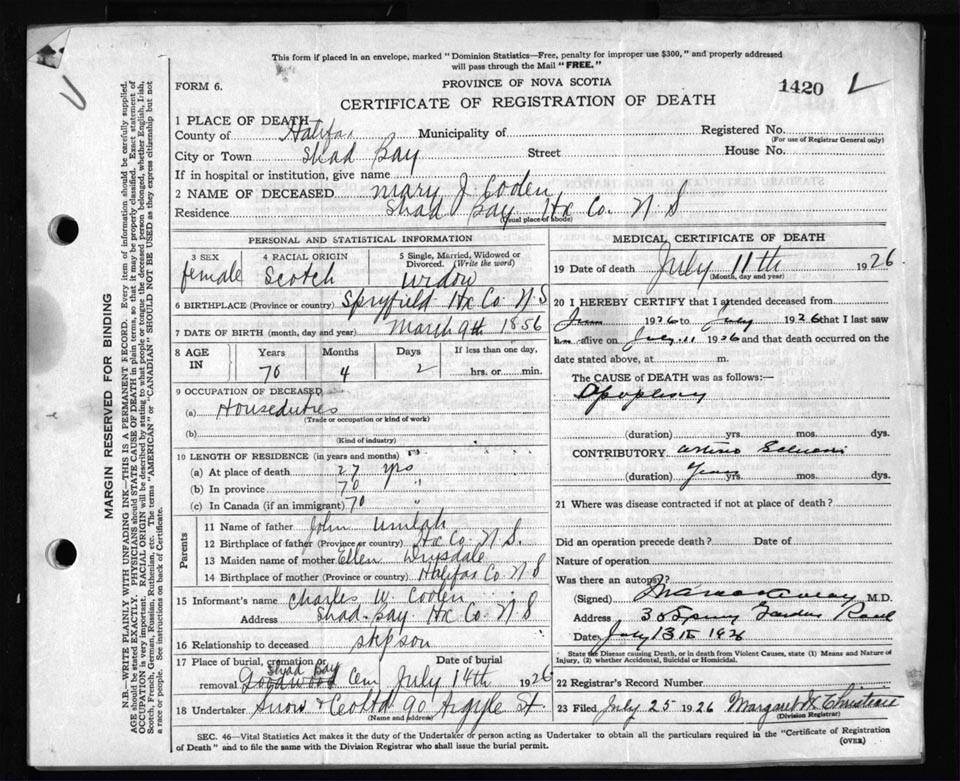 This form if placed in an envelope, marked "Dominion Statistics—Free, penalty for improper use $300," and properly addressed
will pass through the Mail "FREE."
FORM 6.
PROVINCE OF NOVA SCOTIA
1420
CERTIFICATE OF REGISTRATION OF DEATH
1 PLACE OF DEATH
County of Halifax Municipality of Registered No.
(For use of Registrar General only)
City or Town Shad Bay Street House No.
If in hospital or institution, give name
2 NAME OF DECEASED Mary J Coolen
Residence Shad Bay Hx Co. N S
(Usual place of abode)
MARGIN RESERVED FOR BINDING
N.B.—WRITE PLAINLY WITH UNFADING INK—THIS IS A PERMANENT RECORD. Every item of information should be carefully supplied.
AGE should be stated EXACTLY. PHYSICIANS should STATE CAUSE OF DEATH in plain terms, so that it may be properly classified. Exact statement of
OCCUPATION is very important. RACIAL ORIGIN will be described by stating to what people or tongue the deceased person belonged, whether English, Irish,
Scotch, French, German, Russian, Ruthenian, etc. The terms "AMERICAN" or "CANADIAN" SHOULD NOT BE USED as they express citizenship but not
a race or people. See instructions on back of Certificate.
PERSONAL AND STATISTICAL INFORMATION
3 SEX
female
4 RACIAL ORIGIN
Scotch
5 Single, Married, Widowed or
Divorced. (Write the word)
widow
6 BIRTHPLACE (Province or country) Spryfield Hx Co N.S
7 DATE OF BIRTH (month, day and year) March 9th 1856
8 AGE IN
Years Months Days If less than one day,
70 4 2 hrs. or min.
9 OCCUPATION OF DECEASED
(a) Houseduties
(Trade or occupation or kind of work)
(b)
(Kind of industry)
10 LENGTH OF RESIDENCE (in years and months)
(a) At place of death 27 yrs
(b) In province 70 "
(c) In Canada (if an immigrant) 70 "
Parents
11 Name of father John Umlah
12 Birthplace of father (Province or country) Hx Co N S.
13 Maiden name of mother Ellen Drysdale
14 Birthplace of mother (Province or country) Halifax Co N S
15 Informant's name Charles W. Coolen
Address Shad Bay Hx Co N S
16 Relationship to deceased stepson
17 Place of burial, cremation or Date of burial
Shad Bay
removal Goodwood Cem July 14th 1926
18 Undertaker Snow & Co Ltd 90 Argyle St.
(Name and address)
MEDICAL CERTIFICATE OF DEATH
19 Date of death July 11th 1926
(Month, day and year)
20 I HEREBY CERTIFY that I attended deceased from
June 1926 to July 1926 that I last saw
alive on July 11 1926 and that death occurred on the
date stated above, at m.
The CAUSE of DEATH was as follows:—
Apoplexy
(duration) yrs. mos. dys.
CONTRIBUTORY
(duration) Years yrs. mos. dys.
21 Where was disease contracted if not at place of death?
Did an operation precede death? Date of
Nature of operation
Was there an autopsy?
(Signed) M.D.
Address Spring Garden Road
Date July 13th 1926
State the Disease causing Death, or in death from Violent Causes, state (1) Means and Nature of
Injury, (2) whether Accidental, Suicidal or Homicidal.
22 Registrar's Record Number
23 Filed July 25 1926 Margaret Christian
(Division Registrar)
SEC. 46—Vital Statistics Act makes it the duty of the Undertaker or person acting as Undertaker to obtain all the particulars required in the "Certificate of Registration
of Death" and to file the same with the Division Registrar who shall issue the burial permit. (OVER)